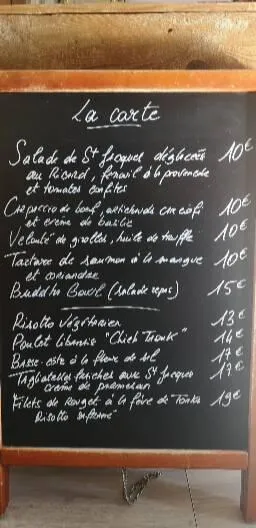 La carte
Salade de St Jacques déglacées 10€
au Ricard, fenouil à la provençale
et tomates confites
Carpaccio de boeuf, artichauds 10€
et crème de basilic
Velouté de girolles, huile de truffe 10€
Tartare de saumon à la mangue 10€
et coriandre
Buddha Bowl (salade repas) 15€
Risotto végétarien 13€
Poulet libanais "Chich Taouk" 14€
Basse-côte à la fleur de sel 17€
Tagliatelles fraîches aux St Jacques 17€
crème de parmesan
Filets de Rouget à la fève de Tonka 19€
Risotto